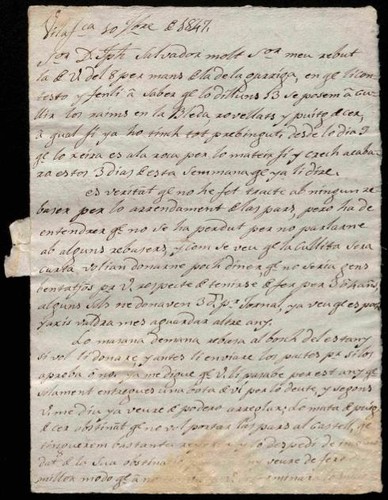 Vilafca 10 9bre de 1847.
Sor Dn Jph Salvador molt Sor meu rebut
la de V. del 8 per mans de la de la garriga, en qe li con
testo y fentli á saber qe lo dilluns 13 se posem á cu
llir los rams en la Bleda revellats y
á qual fi ya ho tinch tot prebingut desde lo dia 9
qe lo xeixa es ala roca per lo mateix fi y crech acaba
ra estos 3 dias de esta semmana qe ya li dire.
es veritat qe no he fet tracte ab ningun re
baser per lo arrendament de las pars, pero ha de
entendrer qe no se ha perdut per no parlarne
ab alguns rebasers, y com se veu qe la Cullita sera
curta volian donarme poch diner qe no seria gens
bentatjos pr V. respecte de tenirse de fer per 3 ó 4 añs
alguns sols me donaven 3 pr Jornal, ya veu qe es po
y axis valdra mes aguardar altre any.
Lo masana demana rebasa al bosch del estany
si vol li donare, y antes li enviare los pactes pr si los
aproba ó no, ya me digue qe V. li pasabe per est any qe
solament entregues una bota de vi per lo deute, y segons
V. me dia ya veure de podero arreglar; lo mata de
de ser obstinat qe no vol portar las pars al Castell, qe
tinguerem bastanta y lo despedi de
dat de lo sua obstina veure de fero
millor modo qe